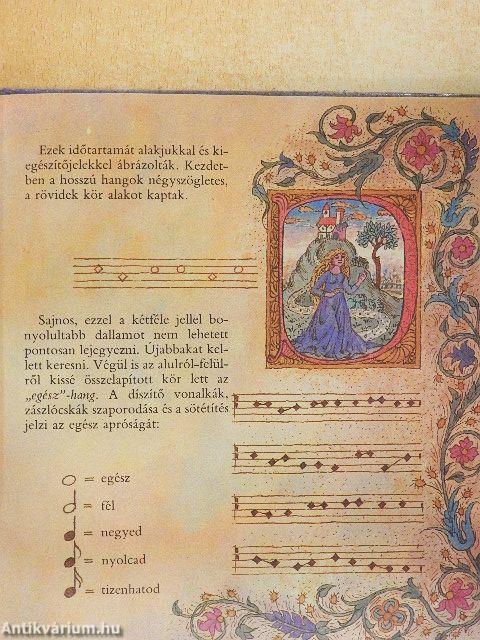 Ezek időtartamát alakjukkal és ki-
egészítőjelekkel ábrázolták. Kezdet-
ben a hosszú hangok négyszögletes,
a rövidek kör alakot kaptak.
Sajnos, ezzel a kétféle jellel bo-
nyolultabb dallamot nem lehetett
pontosan lejegyezni. Újabbakat kel-
lett keresni. Végül is az alulról-felül-
ről kissé összelapított kör lett az
„egész”-hang. A díszítő vonalkák,
zászlócskák szaporodása és a sötétítés
jelzi az egész apróságát:
= egész
= fél
= negyed
= nyolcad
= tizenhatod
Antikvárium.hu